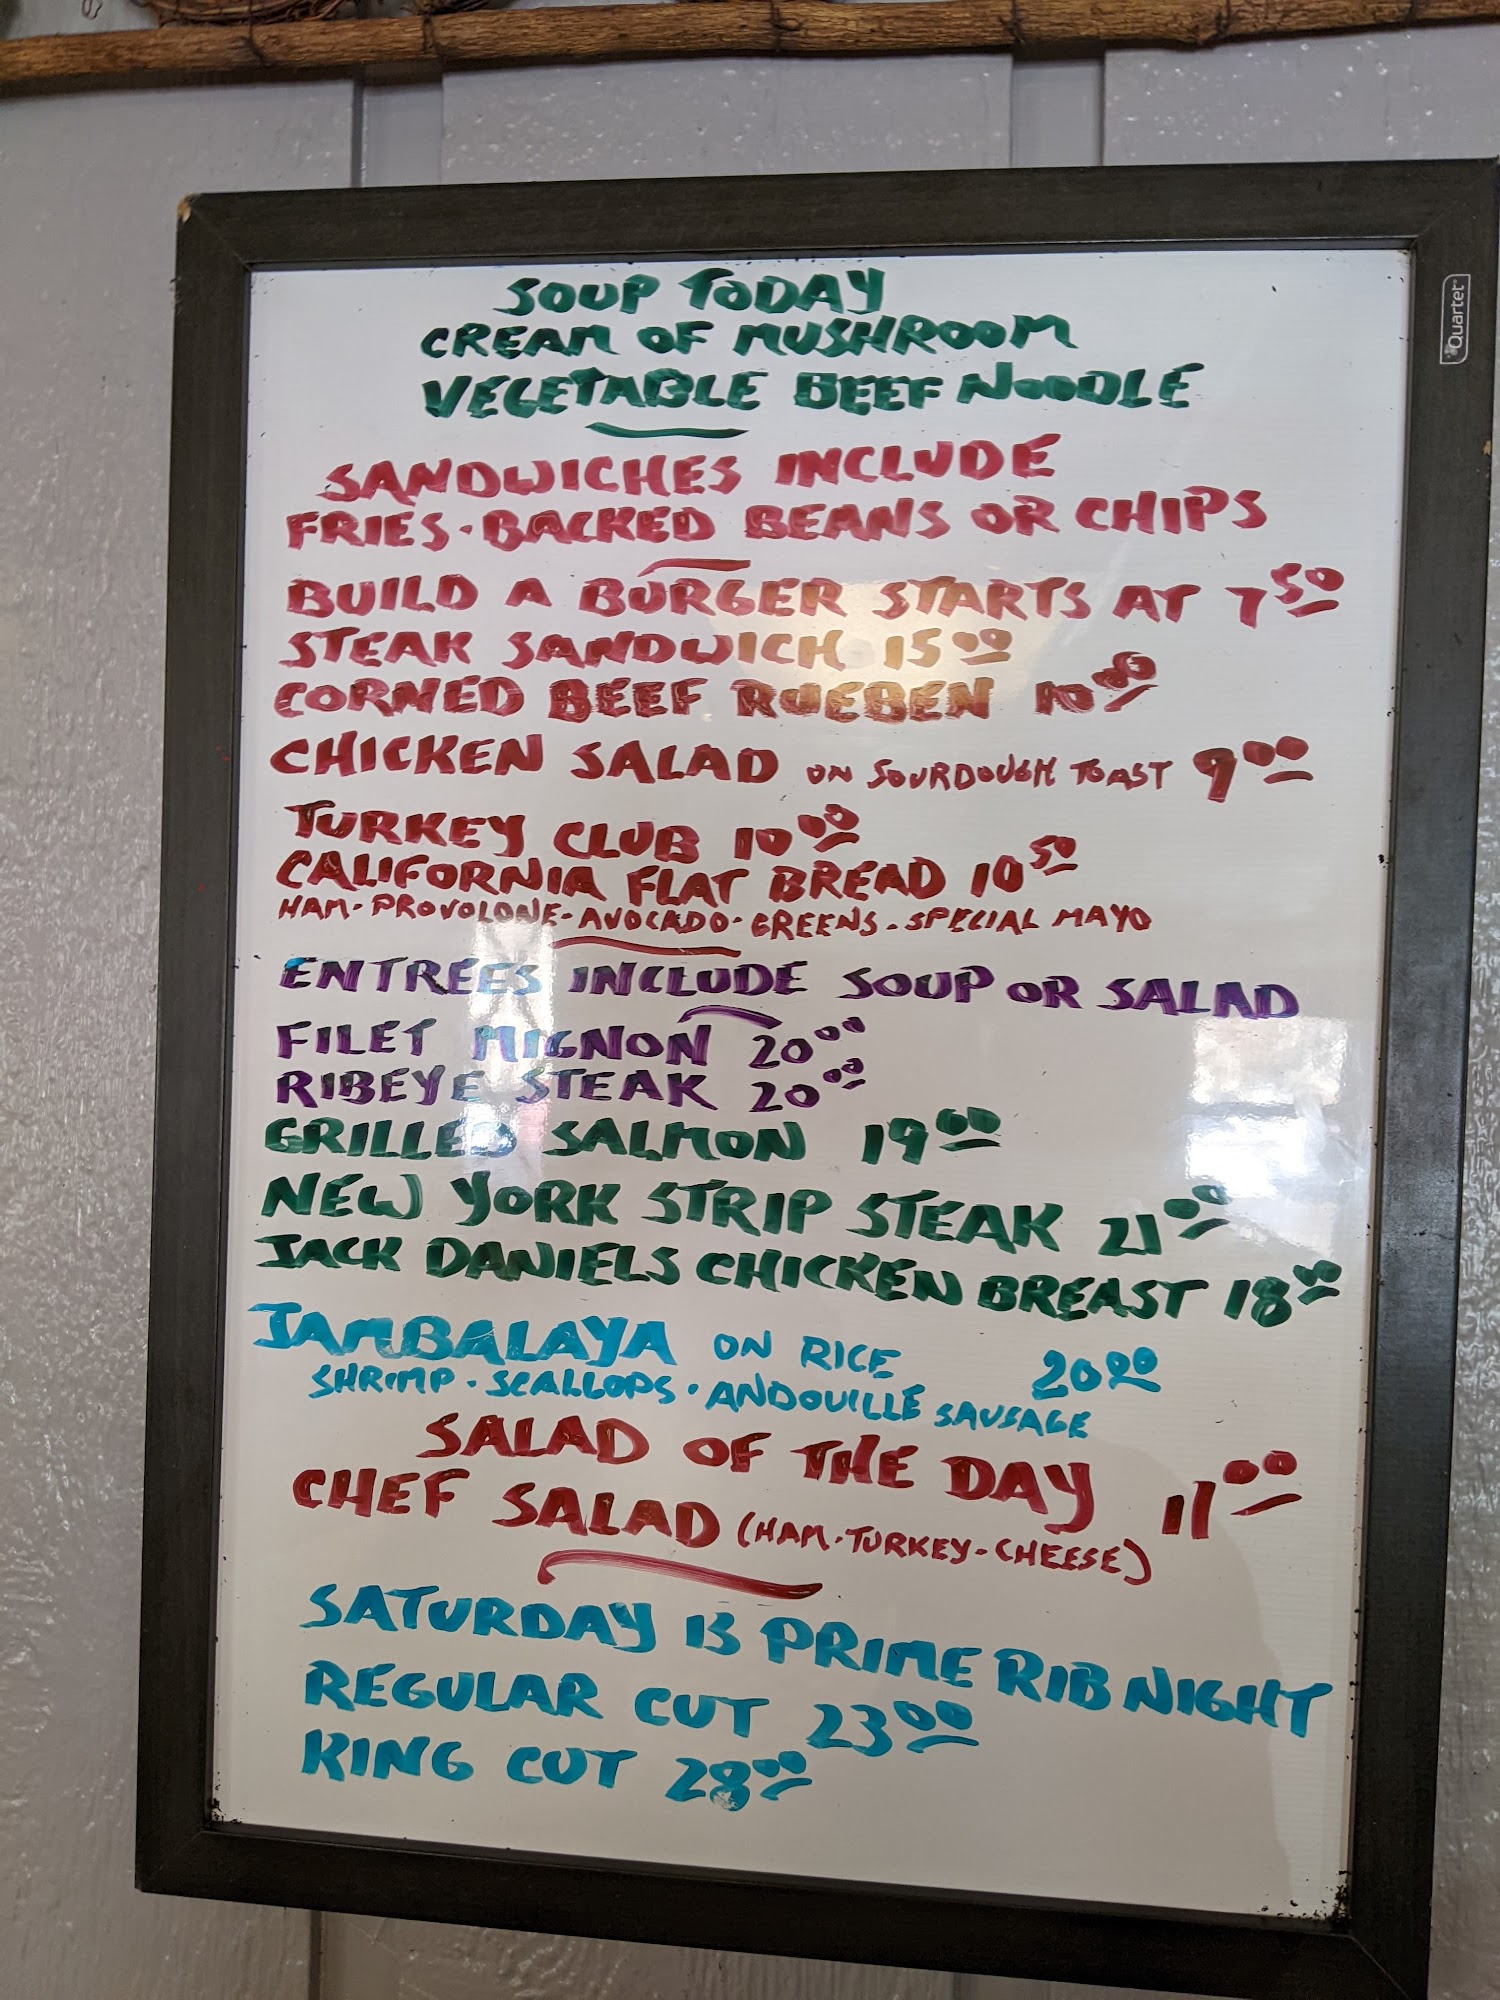 Quartet
SOUP TODAY
CREAM OF MUSHROOM
VEGETABLE BEEF NOODLE
SANDWICHES INCLUDE
FRIES·BACKED BEANS OR CHIPS
BUILD A BURGER STARTS AT 7 50
STEAK SANDWICH 15 00
CORNED BEEF RUEBEN 10 00
CHICKEN SALAD ON SOURDOUGH TOAST 9 00
TURKEY CLUB 10 00
CALIFORNIA FLAT BREAD 10 50
HAM·PROVOLONE·AVOCADO·GREENS·SPECIAL MAYO
ENTRÉES INCLUDE SOUP OR SALAD
FILET MIGNON 20 00
RIBEYE STEAK 20 00
GRILLED SALMON 19 00
NEW YORK STRIP STEAK 21 00
JACK DANIELS CHICKEN BREAST 18 00
JAMBALAYA ON RICE 20 00
SHRIMP·SCALLOPS·ANDOUILLÉ SAUSAGE
SALAD OF THE DAY 11 00
CHEF SALAD (HAM·TURKEY-CHEESE)
SATURDAY IS PRIME RIB NIGHT
REGULAR CUT 23 00
KING CUT 28 00